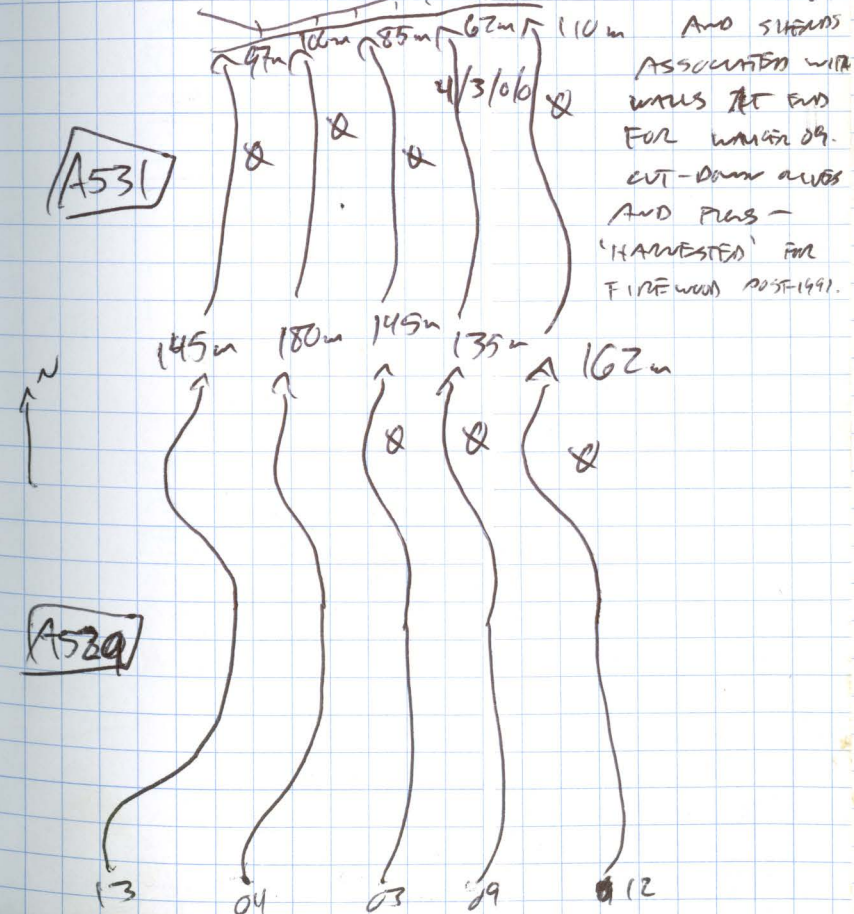 97m 106m 85m 62m 110m
4/3/0/0 Ø
Ø Ø Ø
A531
AND SHERDS
ASSOCIATED WITH
WALLS AT END
FOR WALKER 09.
CUT-DOWN OLIVES
AND FIGS –
'HARVESTED' FOR
FIREWOOD POST-1991.
145m 180m 145m 135m 162m
N
Ø Ø Ø
A529
13 04 03 09 12